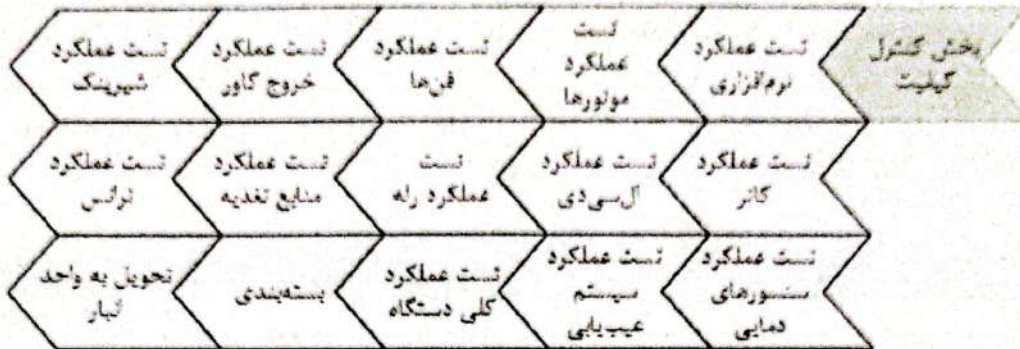 بخش کنترل
کیفیت
تست عملکرد
نرم‌افزاری
تست
عملکرد
موتورها
تست عملکرد
فن‌ها
تست عملکرد
خروج کاور
تست عملکرد
شیرینک
تست عملکرد
کاتر
تست عملکرد
ال‌سی‌دی
تست
عملکرد رله
تست عملکرد
منابع تغذیه
تست عملکرد
ترانس
تست عملکرد
سنسورهای
دمایی
تست عملکرد
سیستم
عیب‌یابی
تست عملکرد
کلی دستگاه
بسته‌بندی
تحویل به واحد
انبار